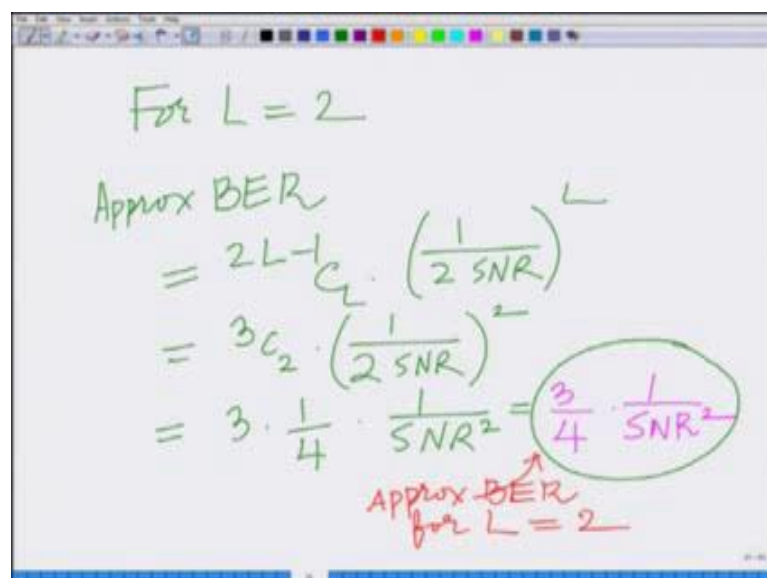 For L = 2
Approx BER
= ^{2L-1}C_L . (1 / 2 SNR)^L
= ^3C_2 . (1 / 2 SNR)^2
= 3 . 1/4 . 1/SNR^2 = 3/4 . 1/SNR^2
Approx BER
for L = 2